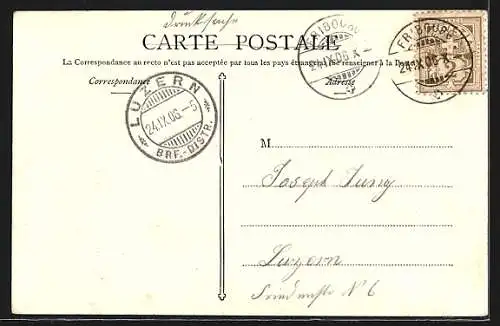 Drucksache
CARTE POSTALE
La Correspondance au recto n'est pas acceptée par tous les pays étrangers. Se renseigner à la Poste
Correspondance
Adresse
FRIBOURG
24.IX.06.X-
FRIBOURG
24.IX.06.X-
LUZERN
24.IX.06.-5
BRF.-DISTR.
M
Joseph
Luzern
N° 6